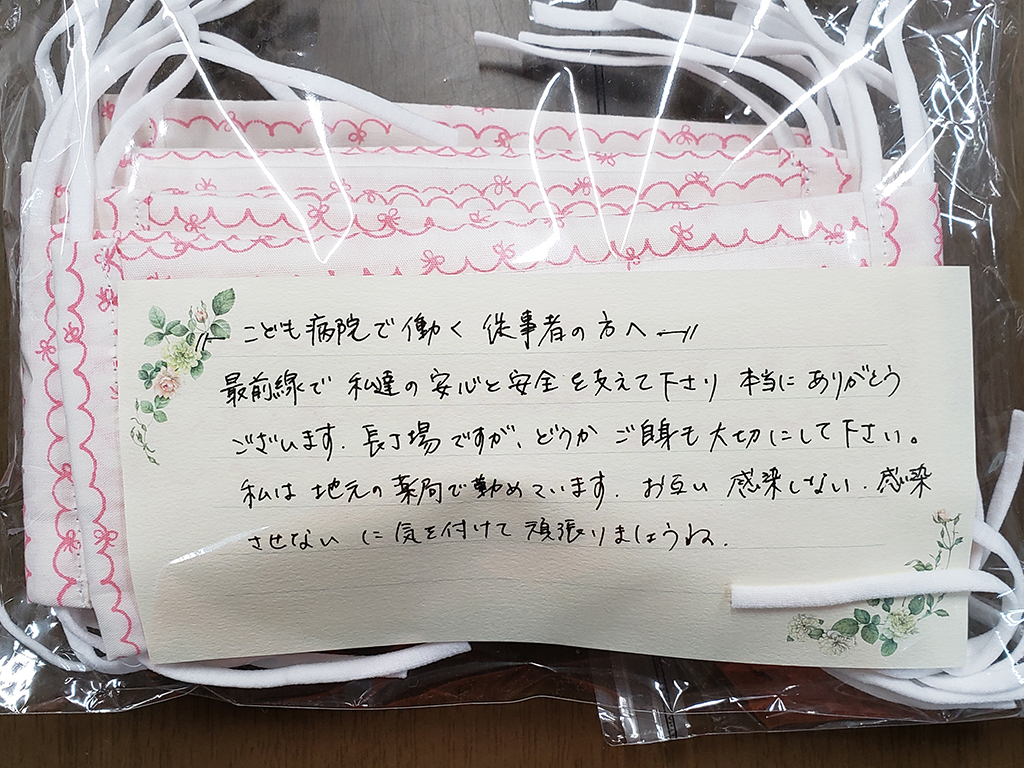 こども病院で働く従事者の方へ
最前線で私達の安心と安全を支えて下さり本当にありがとう
ございます.長丁場ですが、どうかご自身も大切にして下さい。
私は地元の薬局で勤めています.お互い感染しない.感染
させないに気を付けて頑張りましょうね.